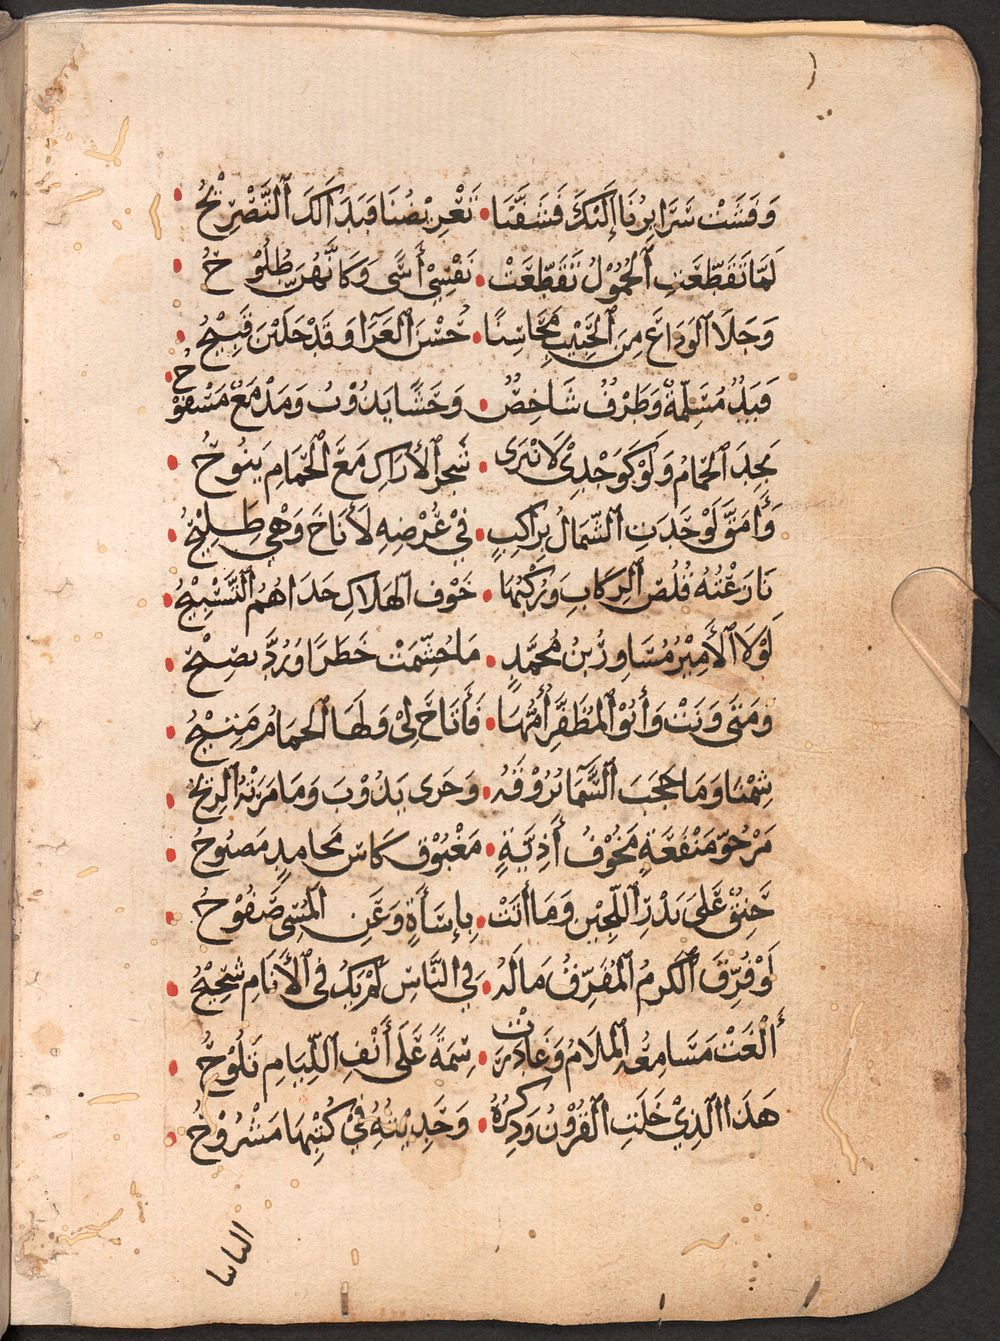 وَفَشَتْ سَرَايِرُنَا إِلَيْكَ فَشَفَّنَا • تَعْرِيْضُنَا فَبَدَا لَكَ ٱلتَّصْرِيْحُ
لَمَّا تَقَطَّعَتِ ٱلْحُمُوْلُ تَقَطَّعَتْ • نَفْسِيْ أَسًى وَكَانَّهُنَّ طُلُوْحُ
وَجَلَا ٱلوَدَاعُ مِنَ ٱلْحَبِيْبِ مَحَاسِنًا • حُسْنُ ٱلعَزَا وَقَدْ جَلَيْنَ قَبِيْحُ
فَيَدٌ مُسَلِّمَةٌ وَطَرْفٌ شَاخِصٌ • وَحَشًا يَذُوْبُ وَمَدْمَعٌ مَسْفُوْحُ
يَجِدُ ٱلحَمَامُ وَلَوْ كَوَجْدِيْ لَانْبَرَى • شَجَرُ ٱلأَرَاكِ مَعَ ٱلْحَمَامِ يَنُوْحُ
وَأَمَقَّ لَوْ خَدَتِ ٱلشَّمَالُ بِرَاكِبٍ • فِيْ عُرْضِهِ لَأَنَاخَ وَهْيَ طَلِيْحُ
نَازَعْتُهُ قُلُصَ ٱلرِكَابِ وَرَكْبُهَا • خَوْفَ ٱلهَلَاكِ حَدَاهُمُ ٱلتَّسْبِيْحُ
لَوْلَا ٱلْأَمِيْرُ مُسَاوِرُ بْنُ مُحَمَّدٍ • مَا جُشِّمَتْ خَطَرًا وَرُدَّ نَصِيْحُ
وَمَتَى وَنَتْ وَأَبُوْ ٱلمُظَفَّرِ أَمُّهَا • فَأَتَاحَ لِيْ وَلَهَا ٱلحِمَامَ مُتِيْحُ
شِمْنَا وَمَا حَجَبَ ٱلسَّمَآءَ بُرُوْقَهُ • وَحَرًى يَذُوْبَ وَمَا مَرَتْهُ ٱلرِيْحُ
مَرْجُوُّ مَنْفَعَةٍ مَخُوْفُ أَذِيَّةٍ • مَغْبُوْقُ كَاسِ مَحَامِدٍ مَصْبُوْحُ
حَنِقٌ عَلَى بَدْرِ ٱللُّجَيْنِ وَمَا أَتَتْ • بِإِسَآءَةٍ وَعَنِ ٱلمُسِى صَفُوْحُ
لَوْ فُرِّقَ ٱلكَرَمُ ٱلمُفَرِّقُ مَالَهُ • فِي النَّاسِ لَمْ يَكُ فِي ٱلأَنَامِ شَحِيْحُ
أَلْغَتْ مَسَامِعُهُ ٱلمَلَامَ وَغَادَرَتْ • سِمَةً عَلَى أَنْفِ ٱللِّيَامِ تَلُوْحُ
هَذَا ٱلَّذِيْ خَلَتِ ٱلقُرُوْنُ وَذِكْرُهُ • وَحَدِيْثُهُ فِيْ كُتْبِهَا مَشْرُوْحُ